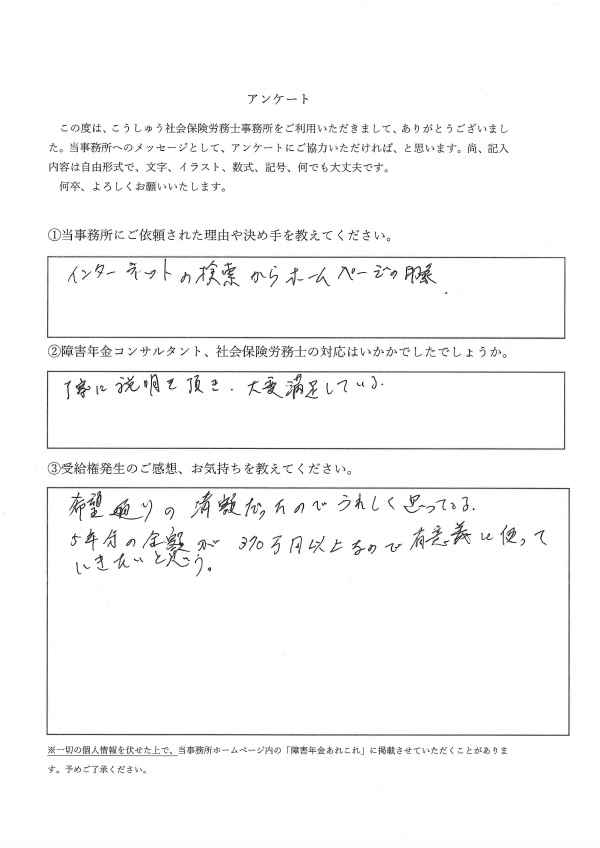 アンケート
この度は、こうしゅう社会保険労務士事務所をご利用いただきまして、ありがとうございまし
た。当事務所へのメッセージとして、アンケートにご協力いただければ、と思います。尚、記入
内容は自由形式で、文字、イラスト、数式、記号、何でも大丈夫です。
何卒、よろしくお願いいたします。
①当事務所にご依頼された理由や決め手を教えてください。
インターネットの検索からホームページの印象.
②障害年金コンサルタント、社会保険労務士の対応はいかかでしたでしょうか。
丁寧に説明を頂き、大変満足している.
③受給権発生のご感想、お気持ちを教えてください。
希望通りの満額だったのでうれしく思ってる.
5年分の金額が370万円以上なので有意義に使って
いきたいと思う。
※一切の個人情報を伏せた上で、当事務所ホームページ内の「障害年金あれこれ」に掲載させていただくことがありま
す。予めご了承ください。